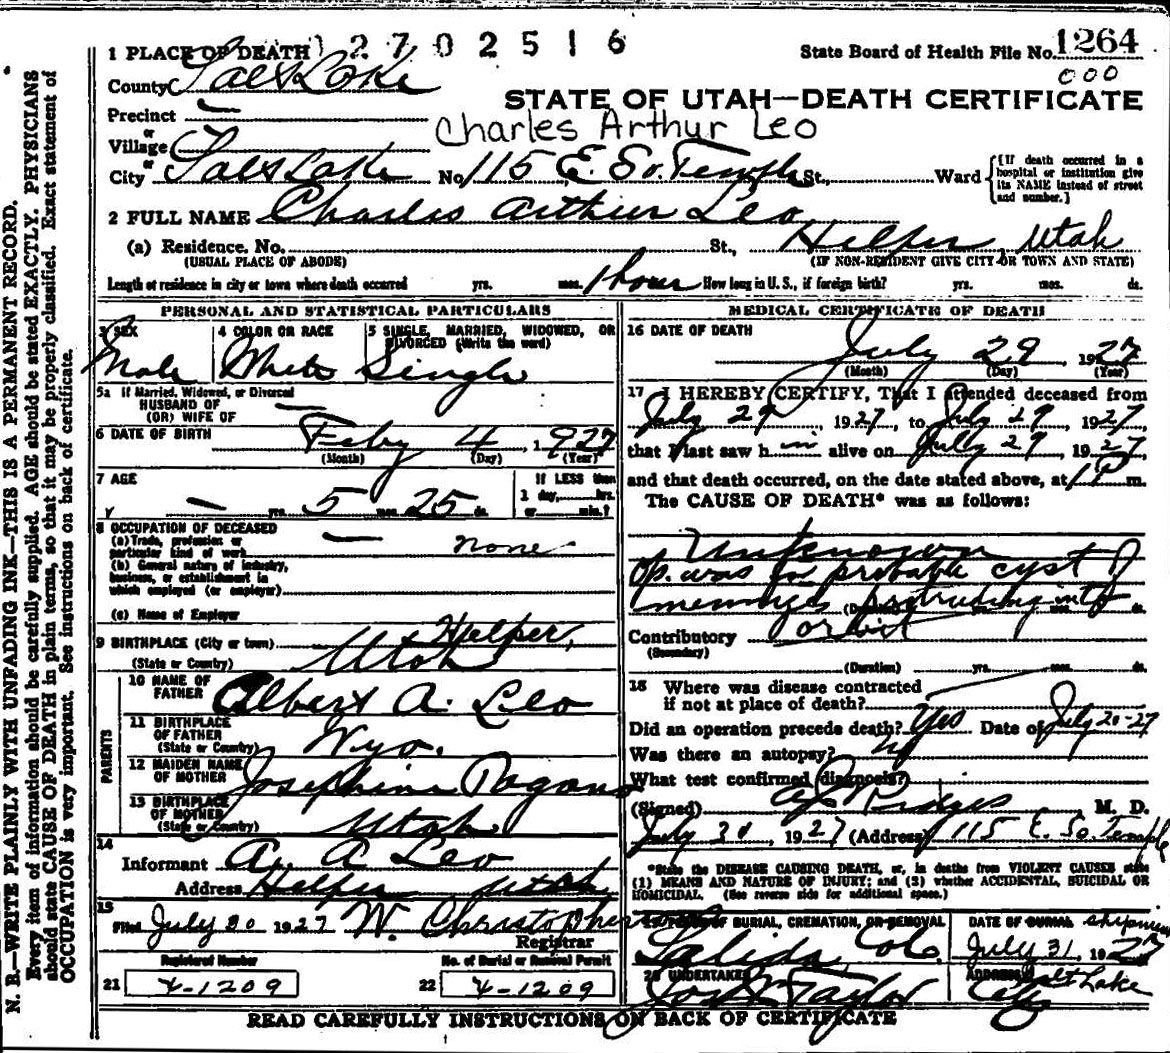 1 PLACE OF DEATH 12702516 State Board of Health File No. 1264
County Salt Lake 000
STATE OF UTAH—DEATH CERTIFICATE
Precinct —
or
Village Charles Arthur Leo
or
City Salt Lake No. 115 E. So. Temple St., Ward {[If death occurred in a hospital or institution give its NAME instead of street and number.]
2 FULL NAME Charles Arthur Leo
(a) Residence. No. St., Helper, Utah
(USUAL PLACE OF ABODE) (IF NON-RESIDENT GIVE CITY OR TOWN AND STATE)
Length of residence in city or town where death occurred yrs. mos. 1 hour How long in U. S., if foreign birth? yrs. mos. ds.
PERSONAL AND STATISTICAL PARTICULARS
3 SEX 4 COLOR OR RACE 5 SINGLE, MARRIED, WIDOWED, OR DIVORCED (Write the word)
Male White Single
5a If Married, Widowed, or Divorced
HUSBAND OF —
(OR) WIFE OF
6 DATE OF BIRTH Feby 4, 1927
(Month) (Day) (Year)
7 AGE If LESS than
— yrs. 5 mos. 25 ds. 1 day, hrs.
or min.?
8 OCCUPATION OF DECEASED
(a) Trade, profession or
particular kind of work — none
(b) General nature of industry,
business, or establishment in
which employed (or employer)
(c) Name of Employer
9 BIRTHPLACE (City or town) Helper,
(State or Country) Utah
PARENTS
10 NAME OF
FATHER Albert A. Leo
11 BIRTHPLACE
OF FATHER
(State or Country) Wyo.
12 MAIDEN NAME
OF MOTHER Josephine Pagano
13 BIRTHPLACE
OF MOTHER
(State or Country) Utah
14
Informant A. A Leo
Address Helper Utah
15
Filed July 30 1927 W. Christopherson
Registrar
Registered Number No. of Burial or Removal Permit
21 X-1209 22 X-1209
MEDICAL CERTIFICATE OF DEATH
16 DATE OF DEATH
July 29 1927
(Month) (Day) (Year)
17 I HEREBY CERTIFY, That I attended deceased from
July 29, 1927, to July 29, 1927
that I last saw h im alive on July 29, 1927,
and that death occurred, on the date stated above, at 1 P m.
The CAUSE OF DEATH* was as follows:
Unknown
Op. was for probable cyst of
meninges protruding into
(Duration) yrs. mos. ds.
Contributory orbit
(Secondary)
(Duration) yrs. mos. ds.
18 Where was disease contracted
if not at place of death?
Did an operation precede death? Yes Date of July 20-27
Was there an autopsy? No
What test confirmed diagnosis?
(Signed) Ridges M. D.
July 30, 1927 (Address) 115 E. So. Temple
*State the DISEASE CAUSING DEATH, or, in deaths from VIOLENT CAUSES state
(1) MEANS AND NATURE OF INJURY; and (2) whether ACCIDENTAL, SUICIDAL OR
HOMICIDAL. (See reverse side for additional space.)
19 PLACE OF BURIAL, CREMATION, OR REMOVAL DATE OF BURIAL shipment
Salida, Colo. July 31, 1927
20 UNDERTAKER ADDRESS Salt Lake
Jos Wm Taylor City
READ CAREFULLY INSTRUCTIONS ON BACK OF CERTIFICATE
N. B.—WRITE PLAINLY WITH UNFADING INK—THIS IS A PERMANENT RECORD.
Every item of information should be carefully supplied. AGE should be stated EXACTLY. PHYSICIANS
should state CAUSE OF DEATH in plain terms, so that it may be properly classified. Exact statement of
OCCUPATION is very important. See instructions on back of certificate.